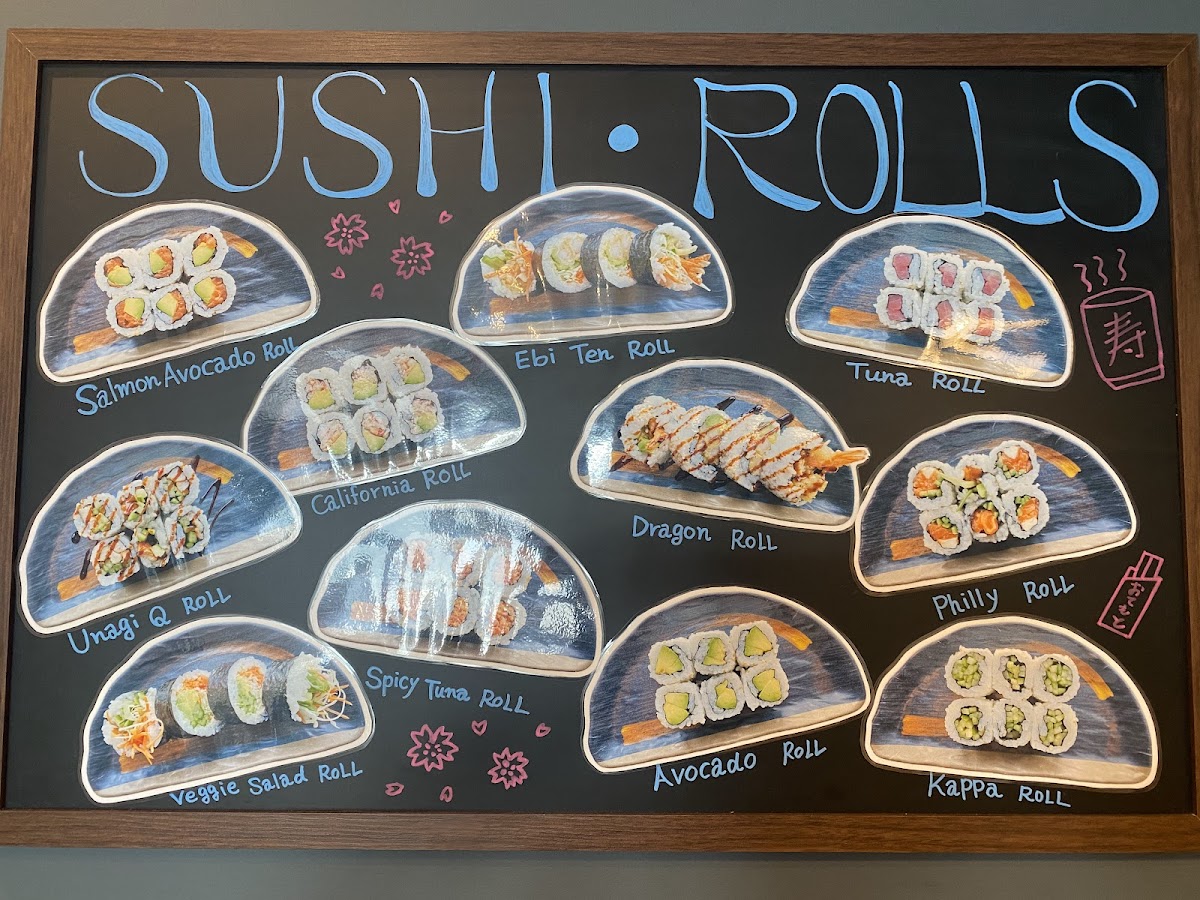 SUSHI · ROLLS
Salmon Avocado Roll
Ebi Ten Roll
Tuna Roll
寿
California Roll
Dragon Roll
Unagi Q Roll
Philly Roll
Spicy Tuna Roll
Veggie Salad Roll
Avocado Roll
Kappa Roll